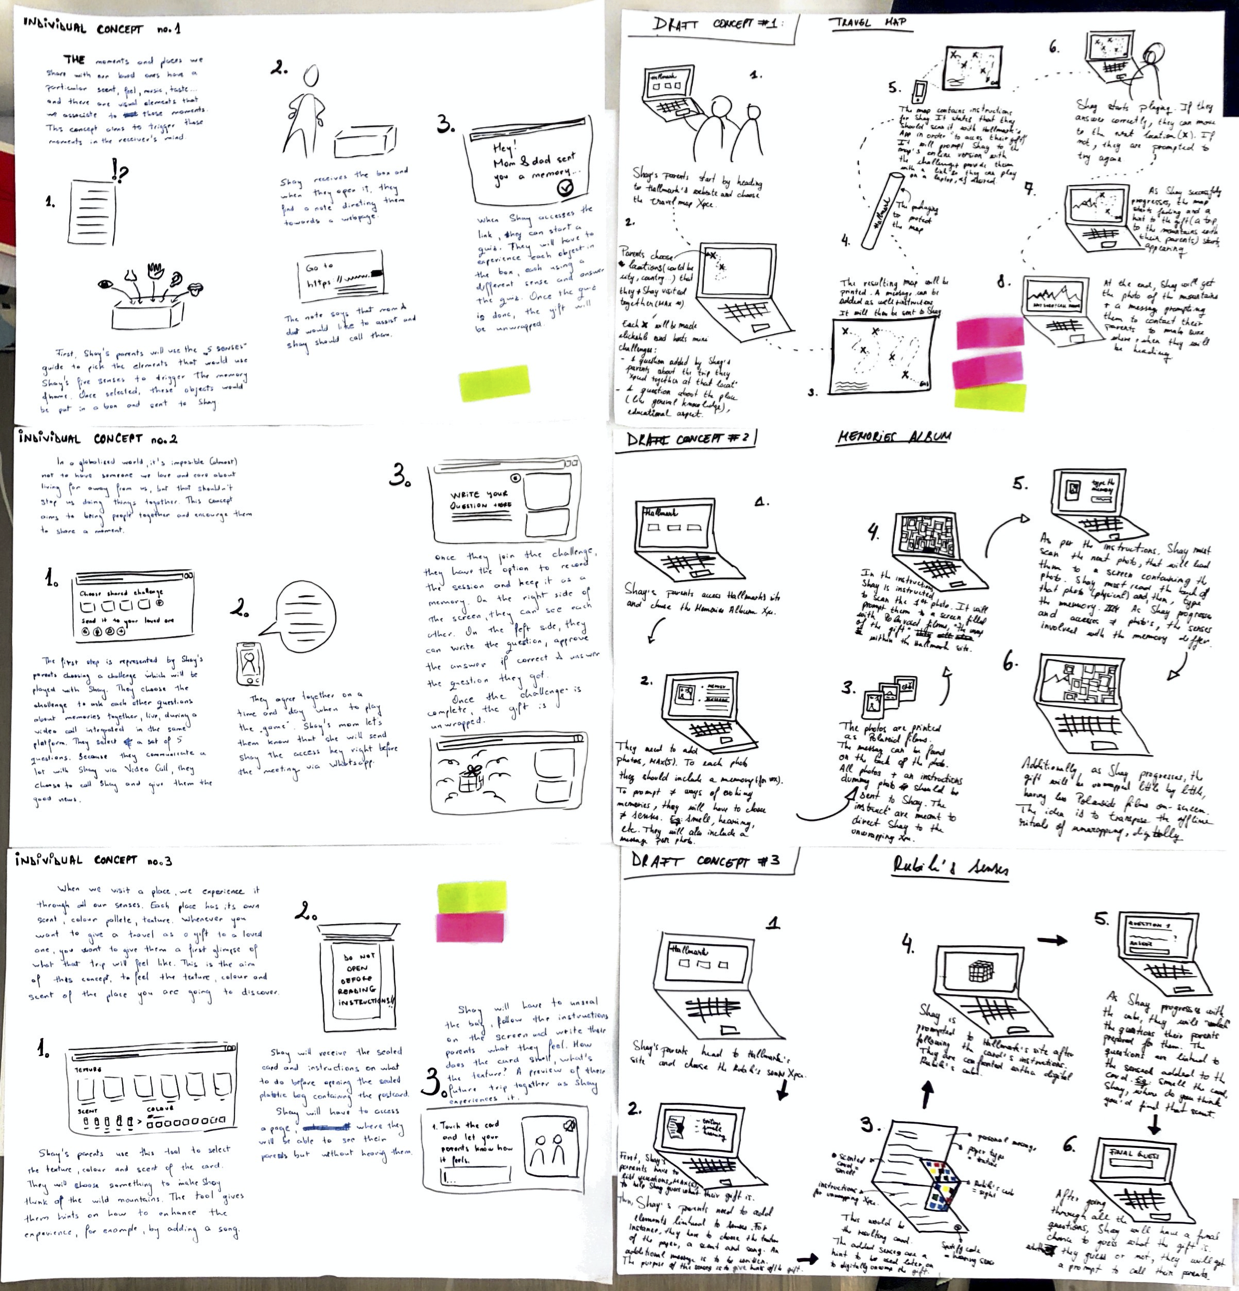 INDIVIDUAL CONCEPT no.1
THE moments and places we
share with our loved ones have a
particular scent, feel, music, taste...
and there are visual elements that
we associate to those moments.
This concept aims to trigger those
moments in the receiver's mind
1.
!?
First, Shay's parents will use the "5 senses"
guide to pick the elements that would use
Shay's five senses to trigger the memory
of home. Once selected, these objects would
be put in a box and sent to Shay
2.
Shay receives the box and
when they open it, they
find a note directing them
towards a webpage.
Go to
https://
The note says that mom &
dad would like to assist and
Shay should call them.
3.
Hey!
Mom & dad sent
you a memory...
When Shay accesses the
link, they can start a
quiz. They will have to
experience each object in
the box, each using a
different sense and answer
the quiz. Once the quiz
is done, the gift will
be unwrapped.
DRAFT CONCEPT #1:
TRAVEL MAP
1.
Hallmark
Shay's parents start by heading
to Hallmark's website and choose
the travel map Xpce.
2.
Parents choose
locations (could be
city, country) that
they & Shay visited
together (MAX)
Each X will be made
clickable and hosts mini
challenges:
- A question added by Shay's
parents about the trip they
Xp'ced together at that locat°
- A question about the place
(like general knowledge),
educational aspect.
3.
The resulting map will be
printed. A message can be
added as well + instructions
It will then be sent to Shay
4.
Hallmark
The packaging
to protect
the map
5.
The map contains instructions
for Shay. It states that they
should scan it with Hallmark's
App in order to access their gift
It will prompt Shay to the
map's online version with
the challenges + provide them
with a link so they can play
on a laptop, if desired
6.
Shay starts playing. If they
answer correctly, they can move
to the next location (X). If
not, they are prompted to
try again
7.
As Shay successfully
progresses, the map
starts fading and a
hint to the gift (a trip
to the mountains with
their parents) starts
appearing.
8.
At the end, Shay will get
the photo of the mountains
+ a message prompting
them to contact their
parents to make sure
where + when they will
be heading.
INDIVIDUAL CONCEPT no.2
In a globalised world, it's impossible (almost)
not to have someone we love and care about
living far away from us, but that shouldn't
stop us doing things together. This concept
aims to bring people together and encourage them
to share a moment.
1.
Choose shared challenge
Send it to your loved one
The first step is represented by Shay's
parents choosing a challenge which will be
played with Shay. They choose the
challenge to ask each other questions
about memories together, live, during a
video call integrated in the same
platform. They select a set of 5
questions. Because they communicate a
lot with Shay via Video Call, they
choose to call Shay and give them the
good news.
2.
They agree together on a
time and day when to play
the "game". Shay's mom let's
them know that she will send
Shay the access key right before
the meeting via Whatsapp.
3.
WRITE YOUR
QUESTION HERE
Once they join the challenge,
they have the option to record
the session and keep it as a
memory. On the right side of
the screen, they can see each
other. On the left side, they
can write the question, approve
the answer if correct & answer
the question they got.
Once the challenge is
complete, the gift is
unwrapped.
DRAFT CONCEPT #2
MEMORIES ALBUM
1.
Hallmark
Shay's parents access Hallmark's site
and chose the Memories Album Xpce.
2.
They need to add
photos, MAX(5). To each photo
they should include a memory
To prompt ≠ ways of evoking
memories, they will have to choose
≠ senses. Eg: smell, hearing,
etc. They will also include a
message per photo.
3.
The photos are printed
as Polaroid films.
The message can be found
on the back of the photo.
All photos + an instructions
dummy photo should be
sent to Shay. The
instruct° are meant to
direct Shay to the
unwrapping Xpce.
4.
In the instructions
Shay is instructed
to scan the 1st photo. It will
prompt them to a screen filled
with Polaroid films,
of the gift
within the Hallmark site.
5.
type the
memory
As per the instructions, Shay must
scan the next photo, that will lead
them to a screen containing the
photo. Shay must read the back of
that photo (physical) and then, type
the memory. As Shay progresses
and accesses ≠ photo's, the senses
involved with the memory differ.
6.
Additionally as Shay progresses, the
gift will be unwrapped little by little,
having less Polaroid films on-screen.
The idea is to transpose the offline
rituals of unwrapping, digitally
INDIVIDUAL CONCEPT no.3
When we visit a place, we experience it
through all our senses. Each place has its own
scent, colour pallete, texture. Whenever you
want to give a travel as a gift to a loved
one, you want to give them a first glimpse of
what that trip will feel like. This is the aim
of this concept, to feel the texture, colour and
scent of the place you are going to discover.
1.
TEXTURE
SCENT
COLOUR
Shay's parents use this tool to select
the texture, colour and scent of the card.
They will choose something to make Shay
think of the wild mountains. The tool gives
them hints on how to enhance the
experience, for example, by adding a song.
2.
DO NOT
OPEN
BEFORE
READING
INSTRUCTIONS!
Shay will receive the sealed
card and instructions on what
to do before opening the sealed
plastic bag containing the postcard.
Shay will have to access
a page, where they
will be able to see their
parents but without hearing them.
3.
Shay will have to unseal
the bag, follow the instructions
on the screen and write their
parents what they feel. How
does the card smell, what's
the texture? A preview of their
future trip together as Shay
experiences it.
1. Touch the card
and let your
parents know how
it feels.
DRAFT CONCEPT #3
Rubik's senses
1
Hallmark
Shay's parents head to Hallmark's
site and choose the Rubik's sense Xpce.
2.
First, Shay's
parents have to
list questions, MAX(5)
to help Shay guess what their gift is.
Then, Shay's parents need to add
elements linked to senses. For
instance, they have to choose the texture
of the paper, a scent and song. An
additional message is to be written.
The purpose of the senses is to give hints of the gift.
3.
personal message
paper type
= texture
Rubik's cube
= sight
Scented
card = smell
instructions
for unwrapping Xpce.
Spotify code
= hearing sense
This would be
the resulting card.
The added senses are a
hint to be used later, on
to digitally unwrap the gift.
4.
Shay is
prompted
to Hallmark's site after
following the card's instructions.
They are confronted with a digital
Rubik's cube.
5.
QUESTION 1
As Shay progresses with
the cube, they will
the questions their parents
prepared for them. The
questions are linked to
the senses added to the
card. Eg: Smell the card,
Shay, where do you think
you'd find that scent.
6.
FINAL GUESS
After going
through all the
questions, Shay will have a final
chance to guess what the gift is.
they guess or not, they will get
a prompt to call their parents.